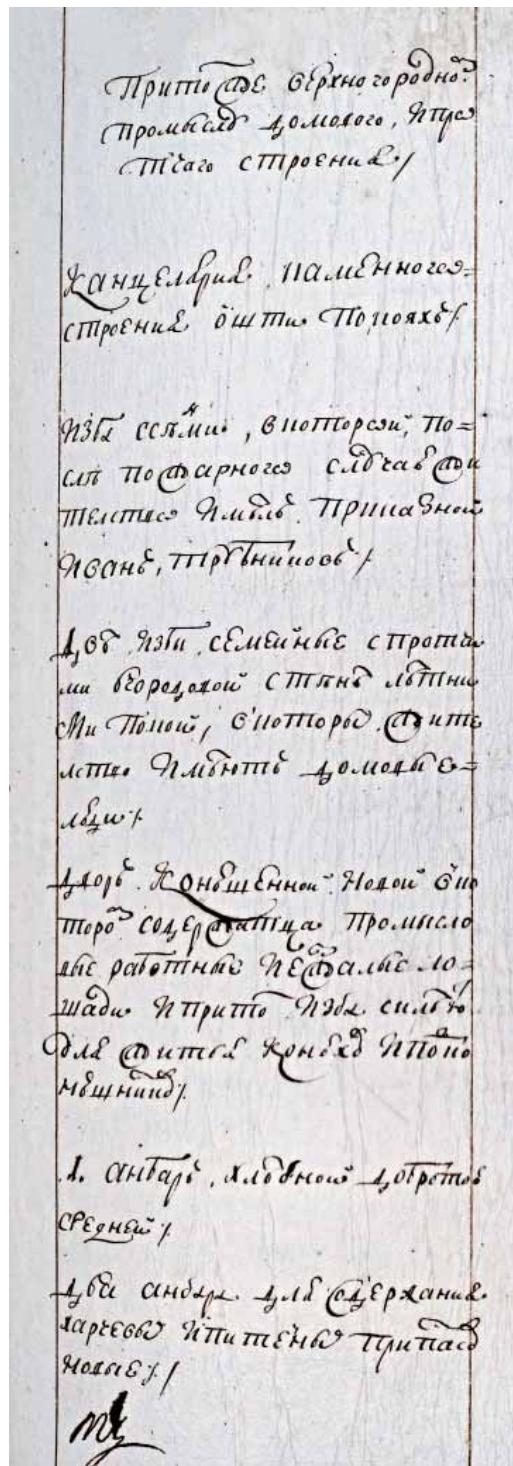 При том же верхногородном
промыслѣ домового, и пре
тчаго строения /
Канцелярия каменного
строения о шти покояхъ /
Изба сѣнми, в которой, по=
слѣ пожарного случая жи
телство имѣлъ приказной
Иванъ, Трубниковъ /
Двѣ избы семейные с протчи
ми в городовой стѣнѣ лѣтни
ми покои, в которыхъ жите
лство имѣютъ домовые в=
лѣцы /
Дворъ конюшенной новой в ко
тором содержатца промысло
вые работные и езжалые ло=
шади и при том изба с
для житья конюхов и
/
1. анбаръ, хлѣбной добротою
средней /
Два анбара для содержания
харчевыхъ и питейныхъ припасов
новые /